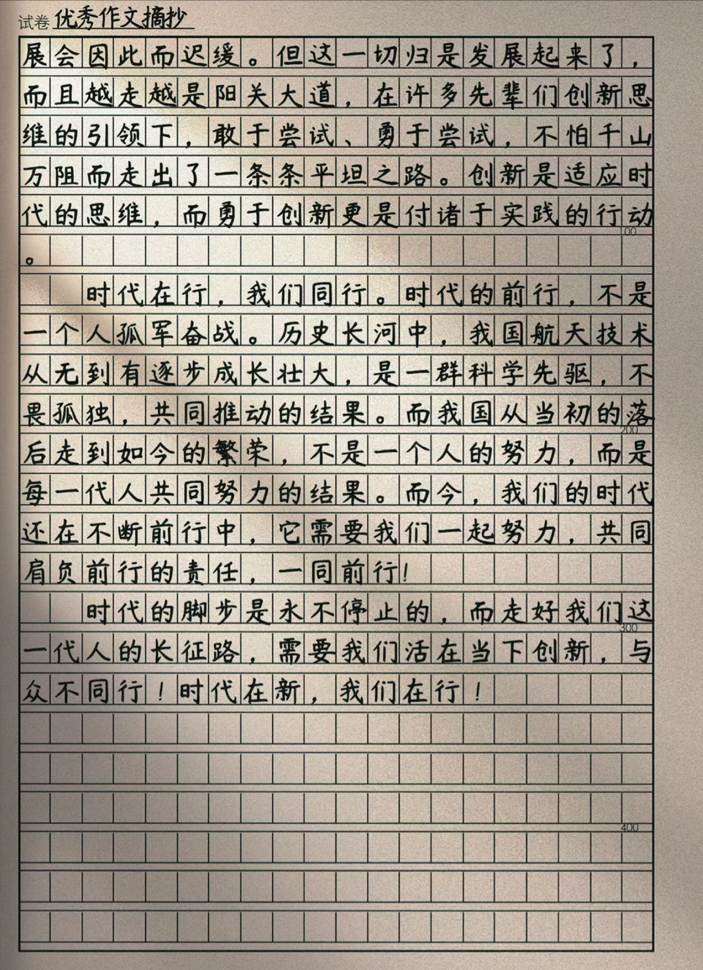 试卷 优秀作文摘抄
展会因此而迟缓。但这一切归是发展起来了，
而且越走越是阳关大道，在许多先辈们创新思
维的引领下，敢于尝试、勇于尝试，不怕千山
万阻而走出了一条条平坦之路。创新是适应时
代的思维，而勇于创新更是付诸于实践的行动
100
。
时代在行，我们同行。时代的前行，不是
一个人孤军奋战。历史长河中，我国航天技术
从无到有逐步成长壮大，是一群科学先驱，不
畏孤独，共同推动的结果。而我国从当初的落
200
后走到如今的繁荣，不是一个人的努力，而是
每一代人共同努力的结果。而今，我们的时代
还在不断前行中，它需要我们一起努力，共同
肩负前行的责任，一同前行！
时代的脚步是永不停止的，而走好我们这
300
一代人的长征路，需要我们活在当下创新，与
众不同行！时代在新，我们在行！
400